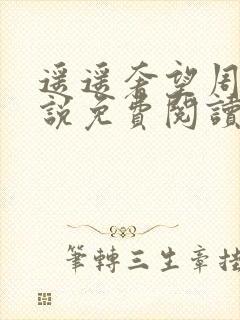 遥遥奢望周
說免費閱讀
筆轉三生章掛